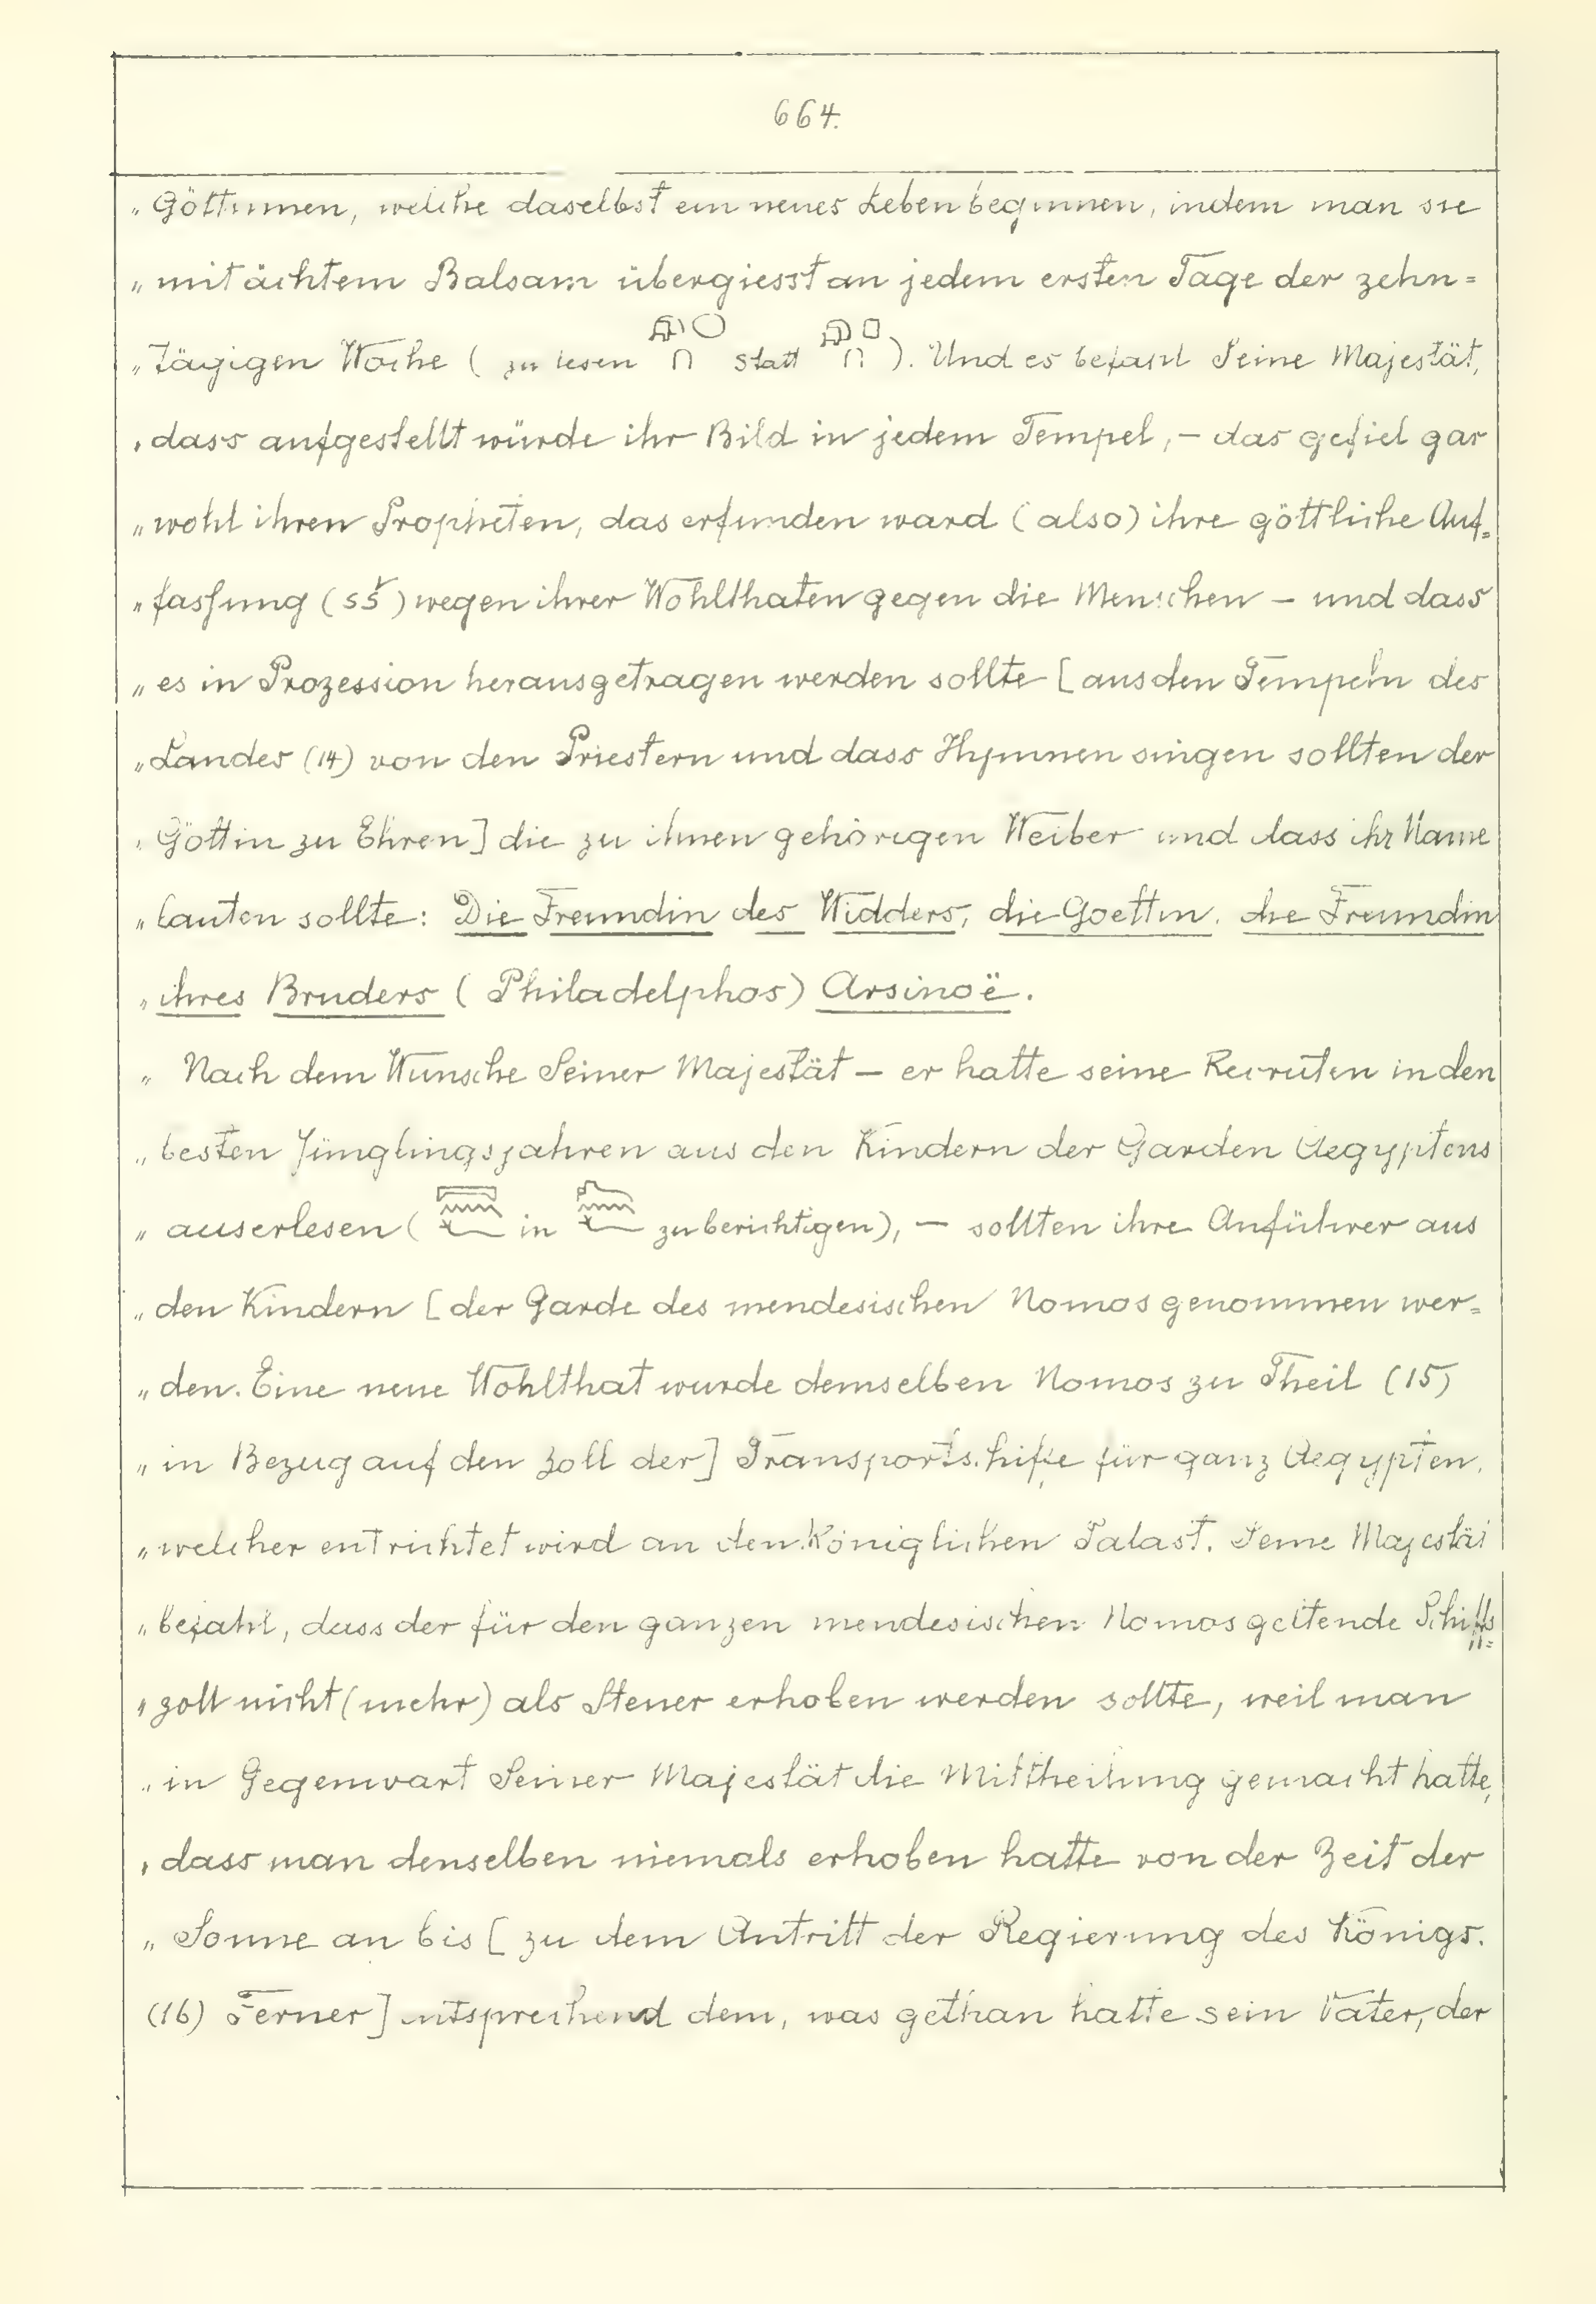 664.
„Göttinnen, welche daselbst ein neues Leben beginnen, indem man sie
„mit ächtem Balsam übergiesst an jedem ersten Tage der zehn=
„tägigen Woche ( zu lesen statt ). Und es befahl Seine Majestät,
„dass aufgestellt würde ihr Bild in jedem Tempel, – das gefiel gar
„wohl ihren Propheten, das erfunden ward (also) ihre göttliche Auf=
„fassung (sš) wegen ihrer Wohlthaten gegen die Menschen – und dass
„es in Prozession herausgetragen werden sollte [aus den Tempeln des
„Landes (14) von den Priestern und dass Hymnen singen sollten der
„Göttin zu Ehren] die zu ihnen gehörigen Weiber und dass ihr Name
„lauten sollte: Die Freundin des Widders, die Goettin, die Freundin
„ihres Bruders (Philadelphos) Arsinoë.
„Nach dem Wunsche Seiner Majestät – er hatte seine Recruten in den
„besten Jünglingsjahren aus den Kindern der Garden Aegyptens
„auserlesen ( in zu berichtigen), – sollten ihre Anführer aus
„den Kindern [der Garde des mendesischen Nomos genommen wer=
„den. Eine neue Wohlthat wurde demselben Nomos zu Theil (15)
„in Bezug auf den Zoll der] Transportschiffe für ganz Aegypten,
„welcher entrichtet wird an den Königlichen Palast. Seine Majestät
„befahl, dass der für den ganzen mendesischen Nomos geltende Schiffs=
„zoll nicht (mehr) als Steuer erhoben werden sollte, weil man
„in Gegenwart Seiner Majestät die Mittheilung gemacht hatte,
„dass man denselben niemals erhoben hatte von der Zeit der
„Sonne an bis [zu dem Antritt der Regierung des Königs.
(16) Ferner] entsprechend dem, was gethan hatte sein Vater, der